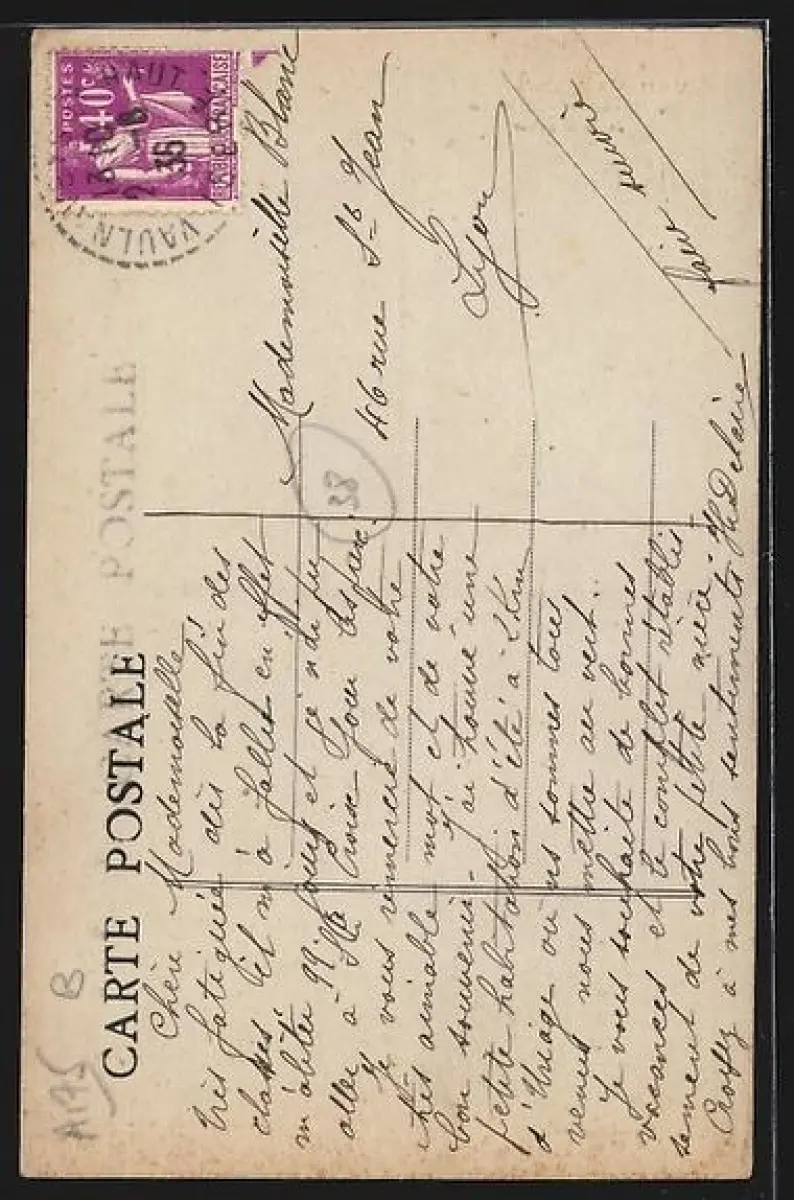 CARTE POSTALE
CARTE POSTALE
A175 B
POSTES
40c
RÉPUBLIQUE FRANÇAISE
VAULN
HAUT
35
38
Chère Mademoiselle
Très fatiguée dès la fin des
classes il m'a fallu en effet
m'aliter 99 jours et je n'ai pu
aller à Ste Croix
Je vous remercie de votre
très aimable mot et de votre
bon souvenir. J'ai trouvé une
petite habitation d'été à 2 Km
d'Uriage où ns sommes tous
venus nous mettre au vert..
Je vous souhaite de bonnes
vacances et le complet rétablis
sement de votre petite nièce.
Croyez à mes bons sentiments. Delaire
Mademoiselle Blanc
46 rue St Jean
Lyon
faire suivre